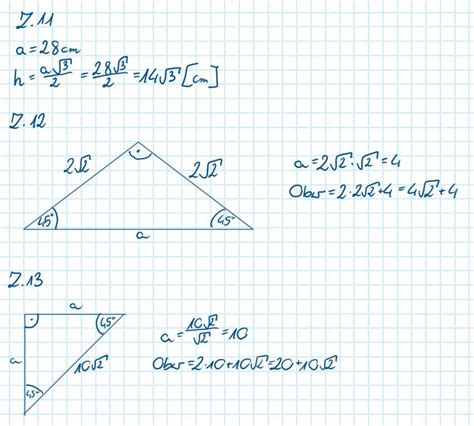 Z.11
a = 28 cm
h = a√3/2 = 28√3/2 = 14√3 [cm]
Z.12
2√2 2√2
45° 45°
a
a = 2√2 · √2 = 4
Obw = 2·2√2 + 4 = 4√2 + 4
Z.13
a
45°
a
10√2
45°
a = 10√2/√2 = 10
Obw = 2·10 + 10√2 = 20 + 10√2